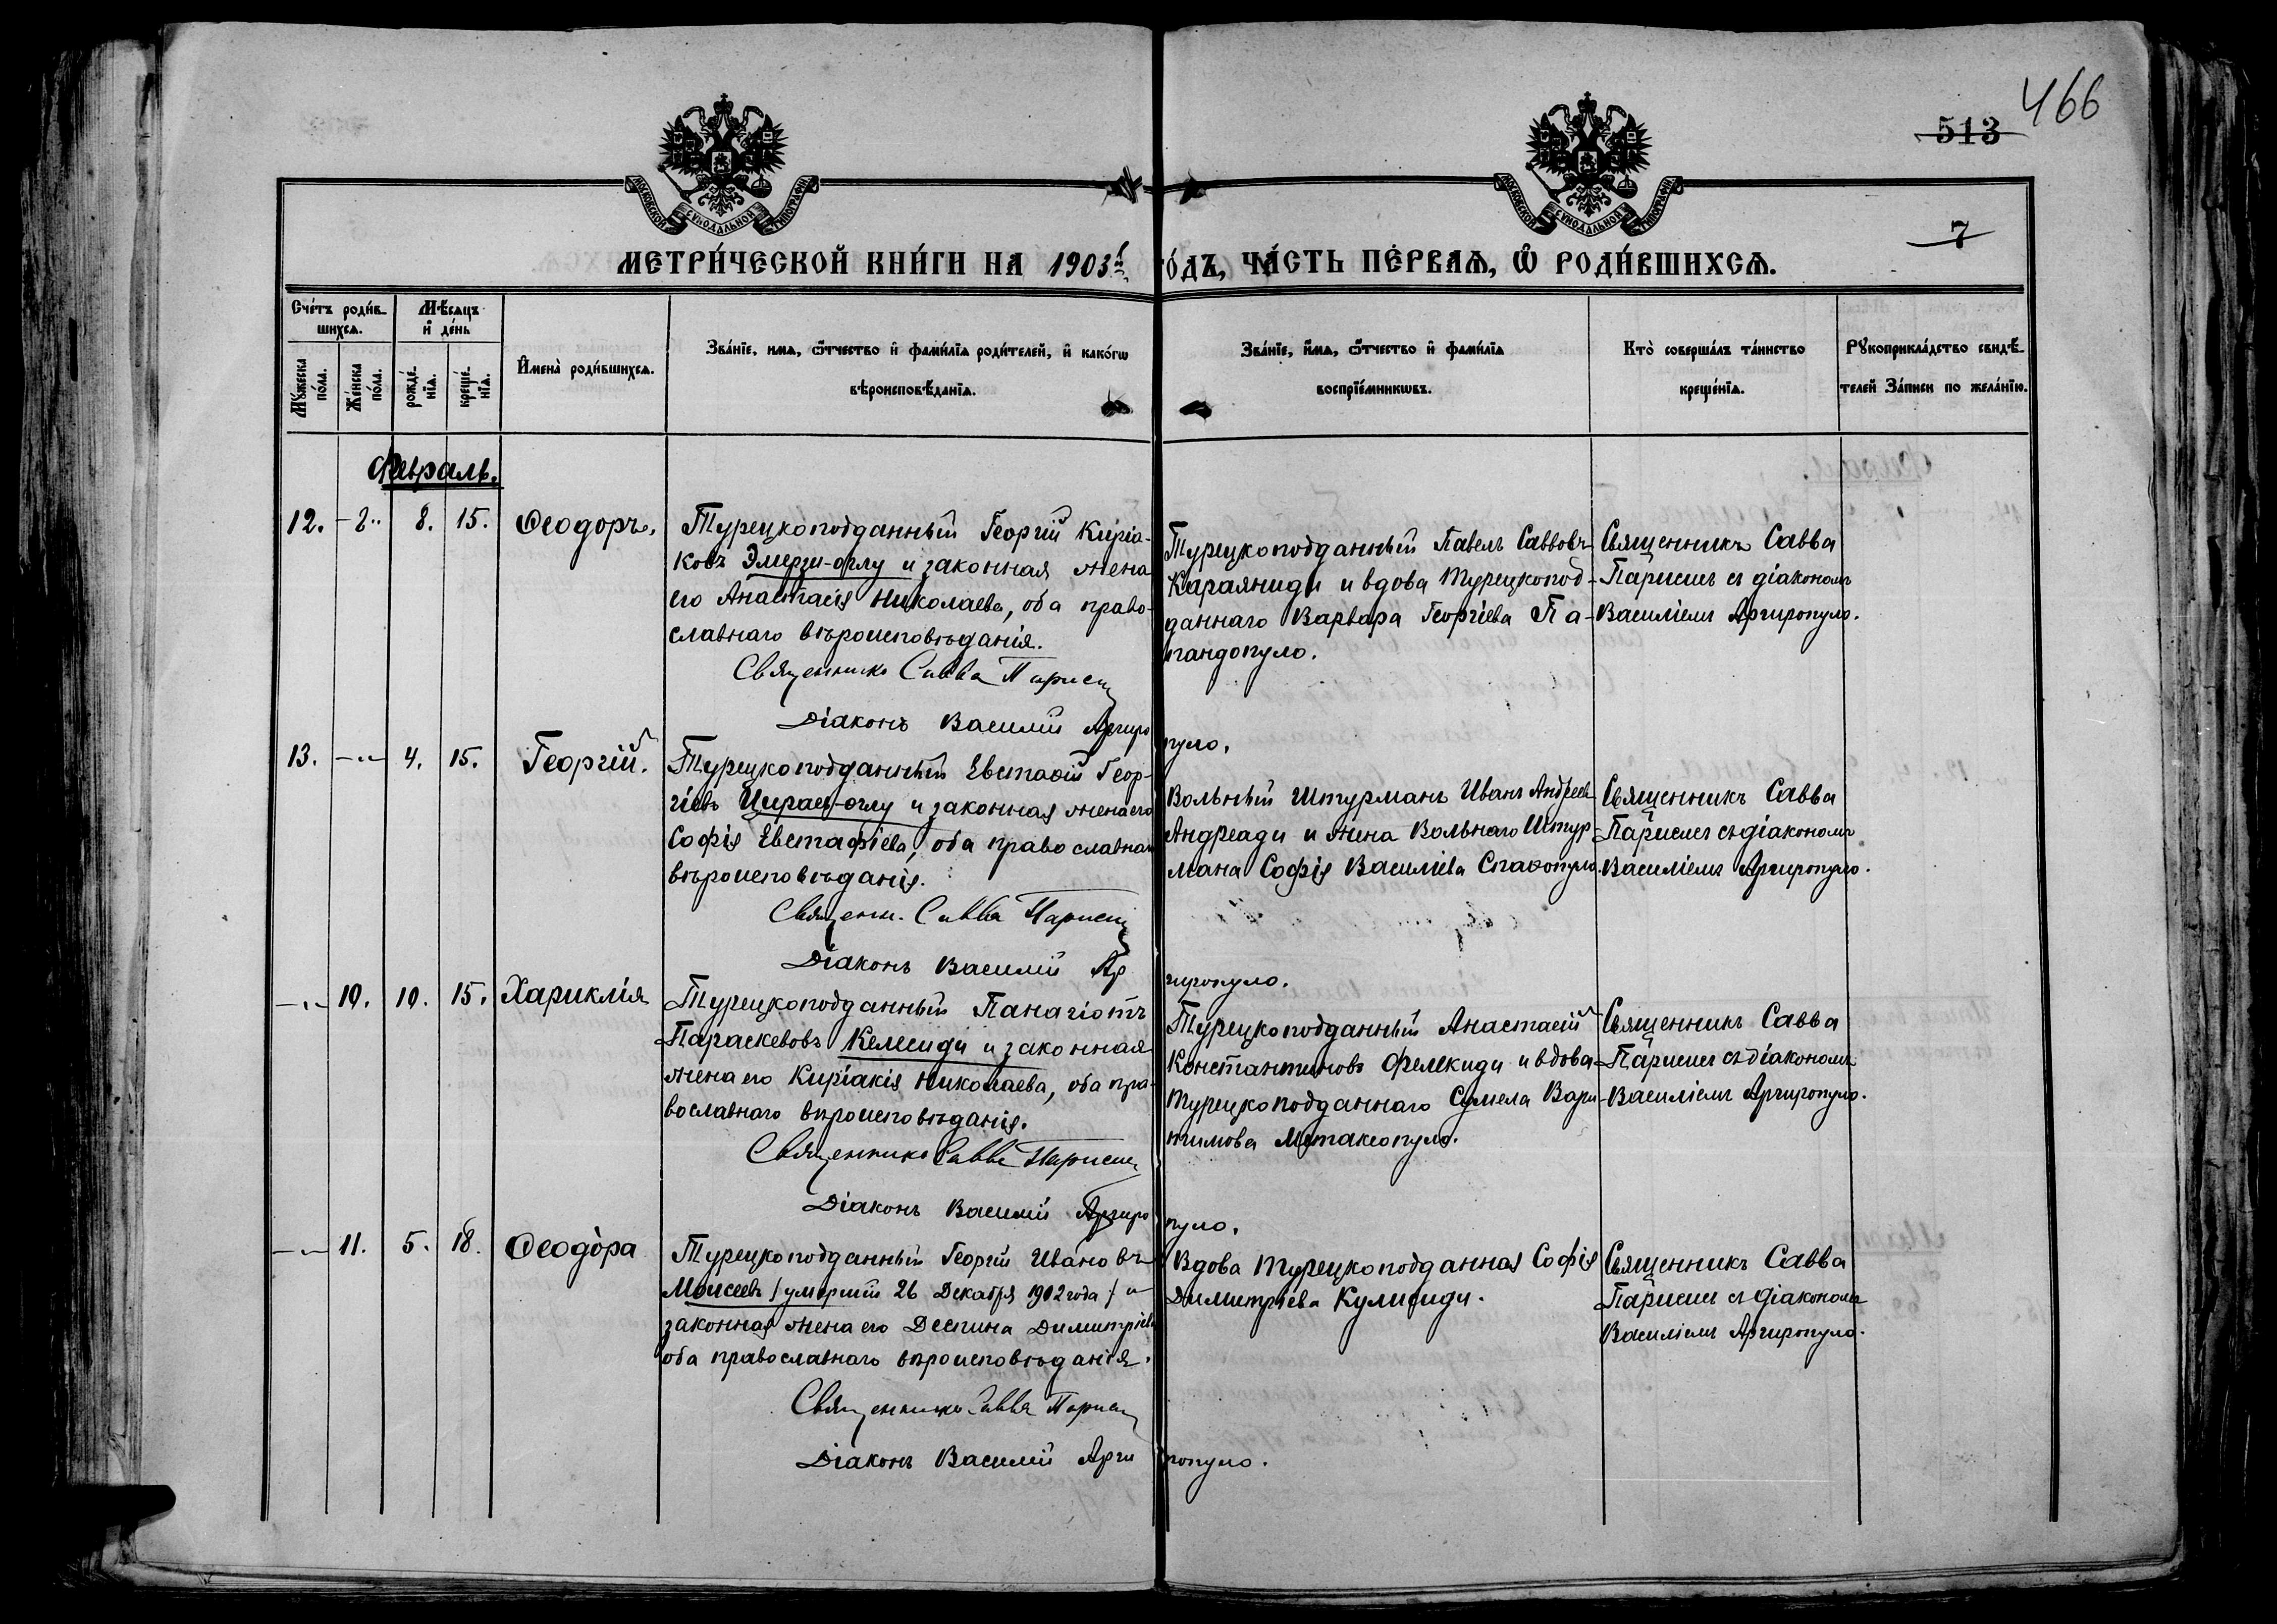 466
513
7
МОСКОВСКОЙ СѴНОДАЛЬНОЙ ТИПОГРАФІИ
МОСКОВСКОЙ СѴНОДАЛЬНОЙ ТИПОГРАФІИ
МЕТРИ́ЧЕСКОЙ КНИ́ГИ НА 1903й го́дъ, ЧА́СТЬ ПЕ́РВАѦ, Ѡ РОДИ́ВШИХСѦ.
Сче́тъ роди́в-
шихсѧ.
Мѣ́сѧцъ
и҆ де́нь
Мꙋ́жеска
по́ла.
Же́нска
по́ла.
рожде́-
нїѧ.
креще́-
нїѧ.
И҆мена̀ роди́вшихсѧ.
Зва́нїе, имѧ, ѻ҆́тчество и҆ фами́лїѧ роди́телей, и҆ како́гѡ
вѣроисповѣ́данїѧ.
Зва́нїе, и҆́мѧ, ѻ҆́тчество и҆ фами́лїѧ
воспрїе́мникѡвъ.
Кто̀ соверша́лъ та́инство
креще́нїѧ.
Рꙋкоприкла́дство свидѣ́-
телей За́писи по жела́нїю.
Февраль.
12. 8. 15. Ѳеодоръ.
Турецкоподданный Георгій Киріа-
ковъ Элмрзи-оглу и законная жена
его Анастасія Николаева, оба право-
славнаго вѣроисповѣданія.
Священникъ Савва Парисис
Діаконъ Василій Аргиропуло.
Турецкоподданный Павелъ Саввовъ
Караяниди и вдова Турецкопод-
даннаго Варвара Георгіева Па-
пандопуло.
Священникъ Савва
Парисисъ съ діакономъ
Василіемъ Аргиропуло.
13. -"- 4. 15. Георгій.
Турецкоподданный Евстаѳій Геор-
гіевъ Цираи-оглу и законная жена его
Софія Евстафіева, оба православнаго
вѣроисповѣданія.
Священн. Савва Парисис
Діаконъ Василій Аргиропуло.
Вольный Штурманъ Иванъ Андреевъ
Андреади и жена Вольнаго Штур-
мана Софія Василіева Спаѳопуло.
Священникъ Савва
Парисисъ съ діакономъ
Василіемъ Аргиропуло.
-"- 10. 10. 15. Хариклія
Турецкоподданный Панагіотъ
Параскевовъ Келесиди и законная
жена его Киріакія Николаева, оба пра-
вославнаго вѣроисповѣданія.
Священникъ Савва Парисис
Діаконъ Василій Аргиропуло.
Турецкоподданный Анастасій
Константиновъ Фелекиди и вдова
Турецкоподданнаго Сумела Вари-
тимова Метаксопуло.
Священникъ Савва
Парисисъ съ діакономъ
Василіемъ Аргиропуло.
-"- 11. 5. 18. Ѳеодора
Турецкоподданный Георгій Ивановъ
Моисеевъ /умершій 26 Декабря 1902 года/ и
законная жена его Деспина Димитріева
оба православнаго вѣроисповѣданія.
Священникъ Савва Парисис
Діаконъ Василій Аргиропуло.
Вдова Турецкоподданная Софія
Димитріева Кулисиди.
Священникъ Савва
Парисисъ съ діакономъ
Василіемъ Аргиропуло.